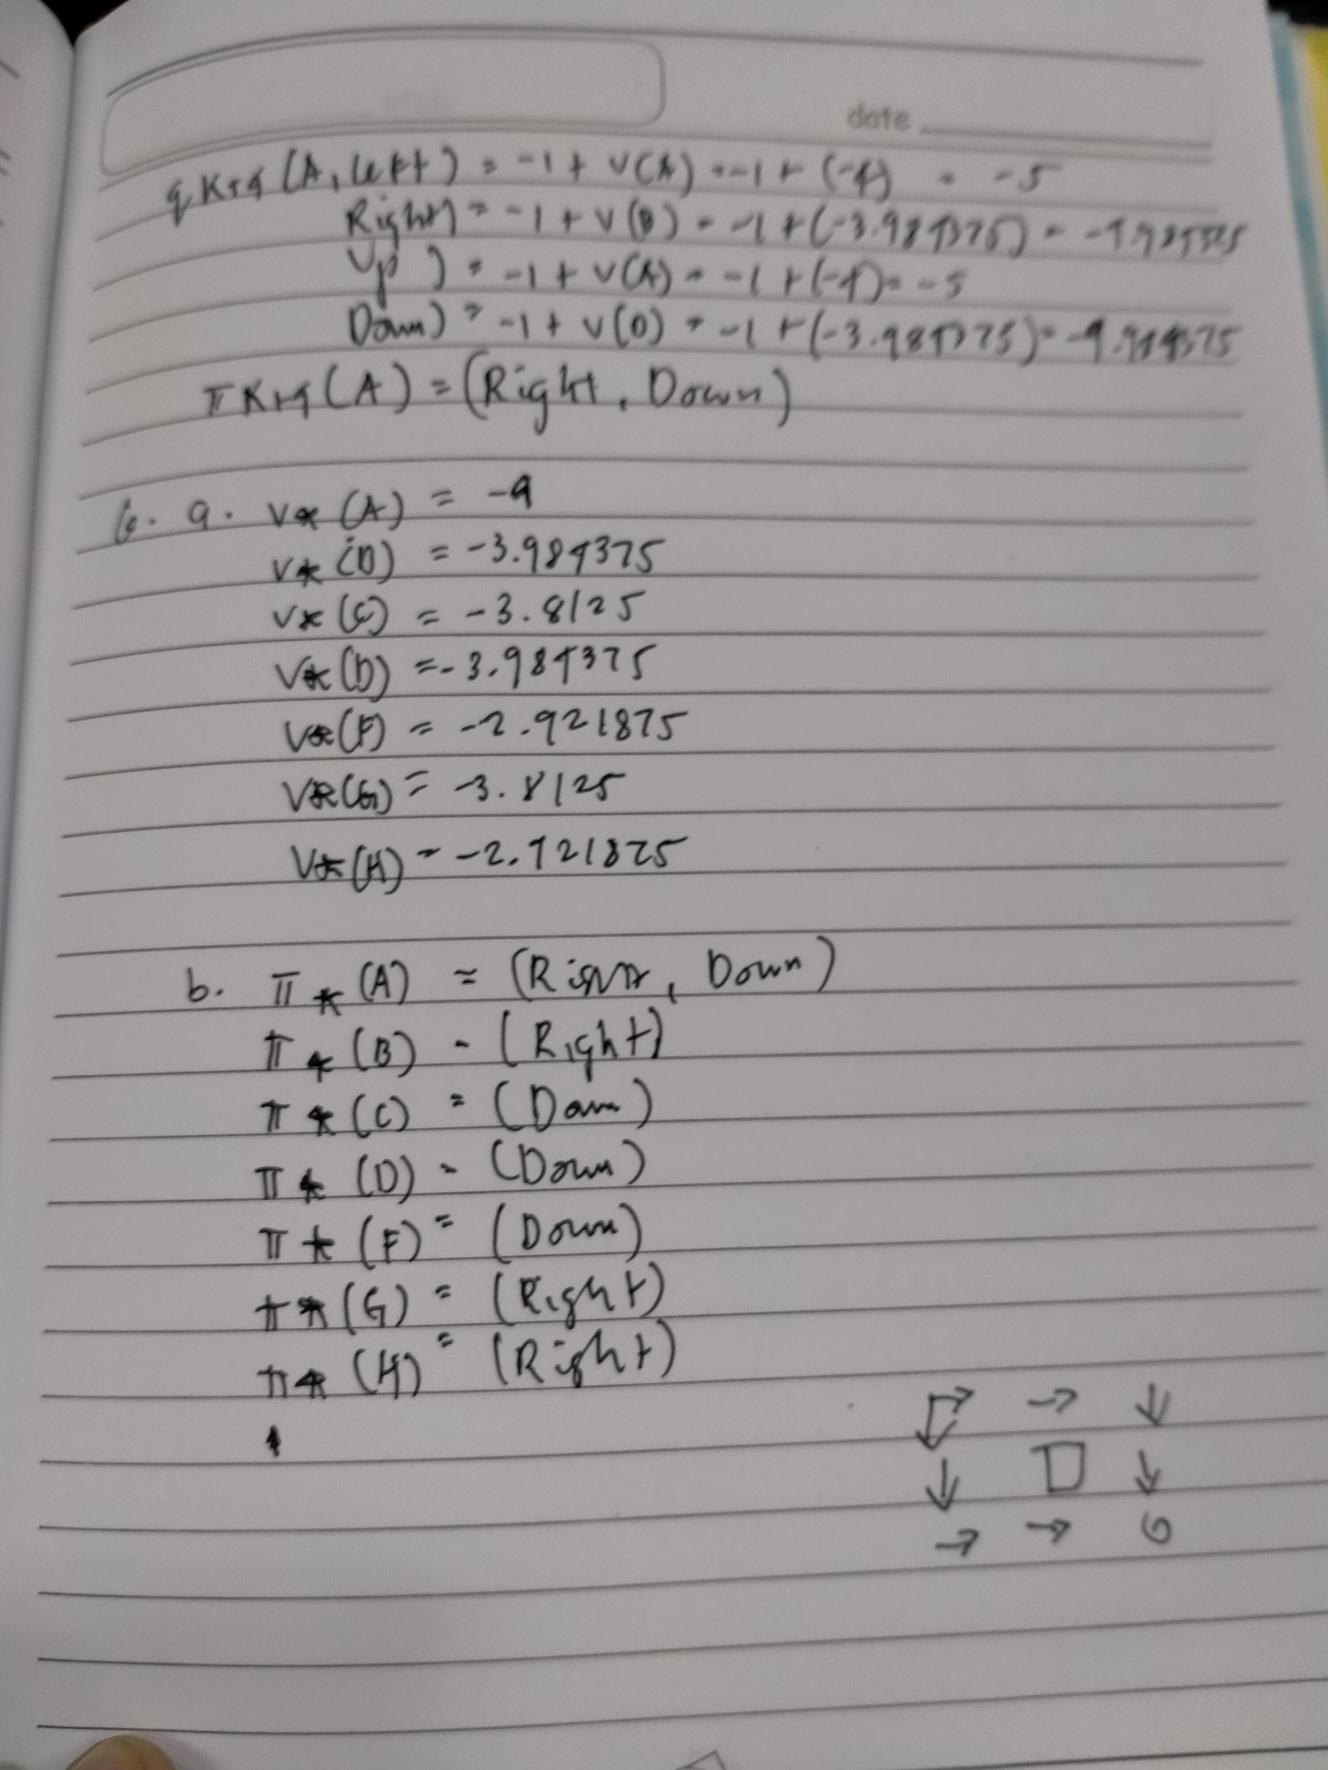 date
q K+4 (A, left) = -1 + V(A) = -1 + (-4) = -5
Right) = -1 + V(B) = -1 + (-3.984375) = -4.984375
Up) = -1 + V(A) = -1 + (-4) = -5
Down) = -1 + V(D) = -1 + (-3.984375) = -4.984375
π K+4 (A) = (Right, Down)
6. a. V* (A) = -4
V* (B) = -3.984375
V* (C) = -3.8125
V* (D) = -3.984375
V* (F) = -2.921875
V* (G) = -3.8125
V* (H) = -2.921875
b. π* (A) = (Right, Down)
π* (B) = (Right)
π* (C) = (Down)
π* (D) = (Down)
π* (F) = (Down)
π* (G) = (Right)
π* (H) = (Right)
→ ↓ → ↓
↓ □ ↓
→ → G